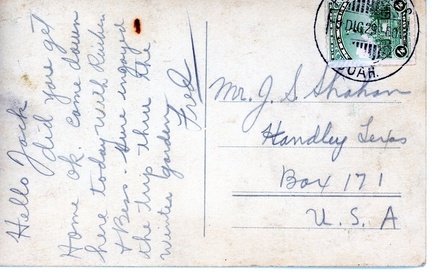 Hello Jack
did you get
Home ok. Came down
here today with Reuben
& Bess. Sure enjoyed
the trip thru the
winter Garden
Fred
DIC 29
JUAR.
Mr. J. S. Shahan
Handley Texas
Box 171
U. S. A